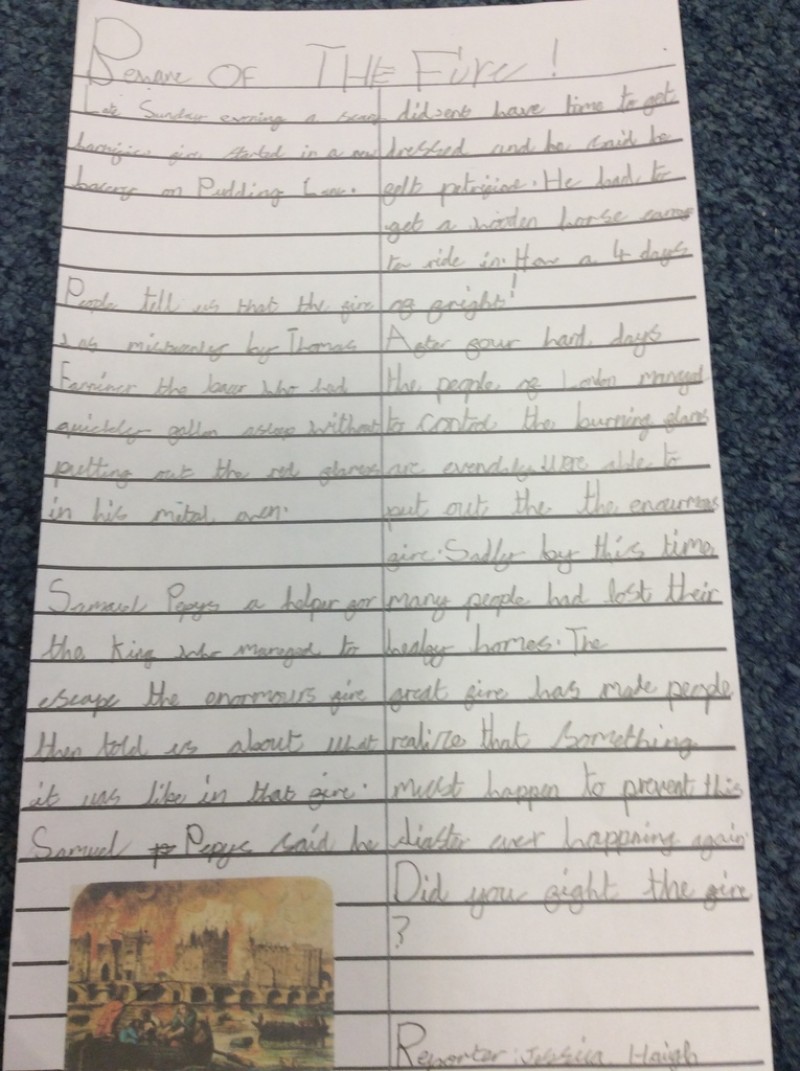 Beware OF THE Fire!
Late Sunday evening a scary
horrific fire started in a
bakery on Pudding Lane.
People tell us that the fire
was by Thomas
Farriner the baker who had
quickly fallen asleep without
putting out the red flames
in his metal oven.
Samuel Pepys a helper for
the King who managed to
escape the enormours fire
then told us about what
it was like in that fire.
Samuel Pepys said he
didsent have time to get
dressed and he said he
felt petrifide. He had to
get a wooden horse
to ride in. How a 4 days
of fright!
After four hard days
the people of London managed
to control the burning flames
evendaly were able to
put out the the enourmas
fire. Sadly by this time
many people had lost their
homes. The
great fire has made people
realise that Something
must happen to prevent this
diaster ever happning again.
Did you fight the fire
?
Reporter: Jessica Haigh